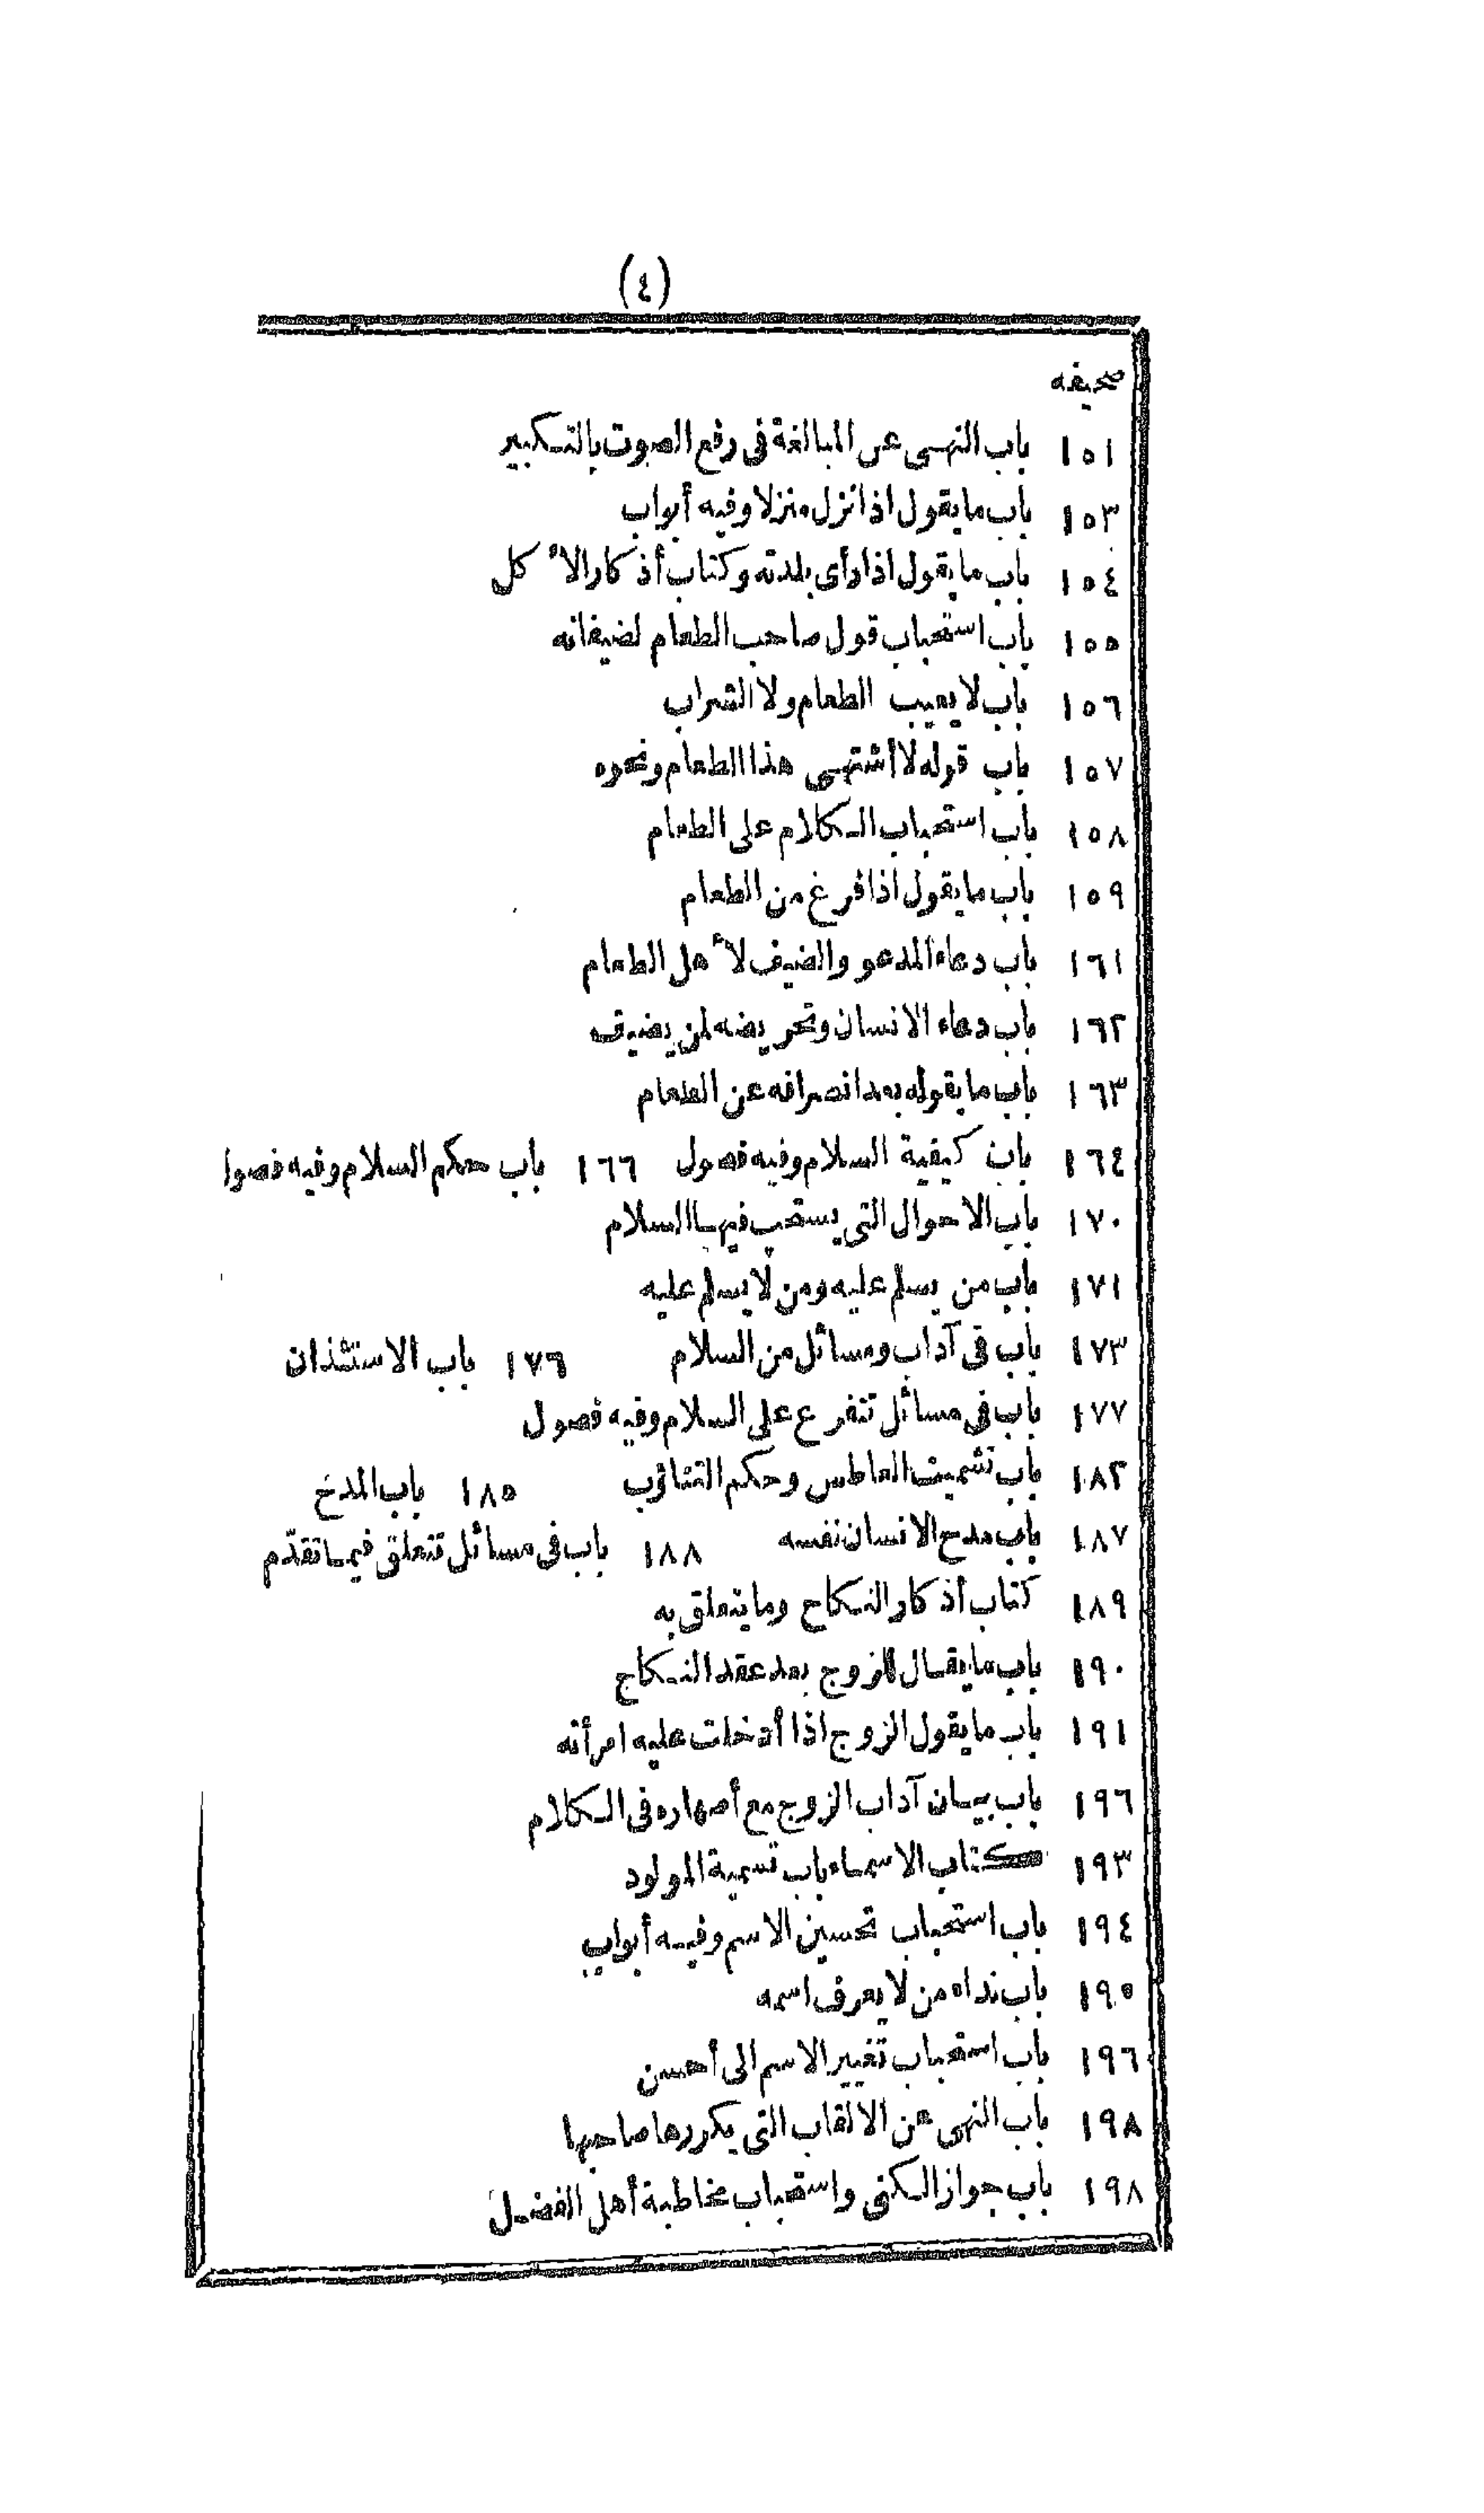 (٤)
صحيفه
١٥١ باب النهى عن المبالغة فى رفع الصوت بالتكبير
١٥٣ باب ما يقول اذا نزل منزلا وفيه أبواب
١٥٤ باب ما يقول اذا رأى بلدته وكتاب أذكار الأكل
١٥٥ باب استحباب قول صاحب الطعام لضيفانه
١٥٦ باب لا يعيب الطعام ولا الشراب
١٥٧ باب قوله لا أشتهى هذا الطعام ونحوه
١٥٨ باب استحباب الكلام على الطعام
١٥٩ باب ما يقول اذا فرغ من الطعام
١٦١ باب دعاء المدعو والضيف لأهل الطعام
١٦٢ باب دعاء الانسان وتحريضه لمن يضيف
١٦٣ باب ما يقوله بعد انصرافه عن الطعام
١٦٤ باب كيفية السلام وفيه فصول ١٦٦ باب حكم السلام وفيه فصوا
١٧٠ باب الاحوال التى يستحب فيها السلام
١٧١ باب من يسلم عليه ومن لا يسلم عليه
١٧٣ باب فى آداب ومسائل من السلام ١٧٦ باب الاستئذان
١٧٧ باب فى مسائل تتفرع على السلام وفيه فصول
١٨٢ باب تشميت العاطس وحكم التثاؤب ١٨٥ باب المدح
١٨٧ باب مدح الانسان نفسه ١٨٨ باب فى مسائل تتعلق فيما تقدّم
١٨٩ كتاب أذكار النكاح وما يتعلق به
١٩٠ باب ما يقال للزوج بعد عقد النكاح
١٩١ باب ما يقول الزوج اذا أدخلت عليه امرأته
١٩٦ باب بيان آداب الزوج مع أصهاره فى الكلام
١٩٣ كتاب الاسماء باب تسمية المولود
١٩٤ باب استحباب تحسين الاسم وفيه أبواب
١٩٥ باب نداء من لا يعرف اسمه
١٩٦ باب استحباب تغيير الاسم الى أحسن
١٩٨ باب النهى عن الالقاب التى يكررها صاحبها
١٩٨ باب جواز الكنى واستحباب مخاطبة أهل الفضل